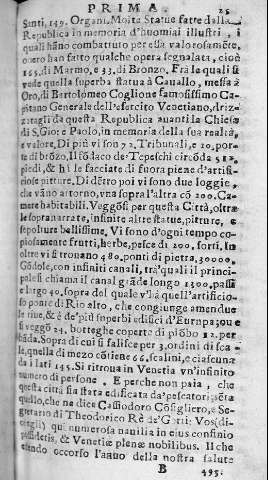 PRIMA. 25
Santi, 139. Organi. Molte Statue fatte dalla
Republica in memoria d'huomini illustri, i
quali hãno combattuto per essa valorosamẽte,
overo han fatto qualche opera segnalata, cioè
165. di Marmo, e 33. di Bronzo. Fra le quali si
vede quella superba statua à Cavallo, messa à
Oro, di Bertolomeo Coglione famosissimo Ca-
pitano Generale dell'esercito Venetiano, driz-
zatagli da questa Republica avanti la Chiesa
di S. Gio: e Paolo, in memoria della sua realtà,
e valore. Di più vi son 72. Tribunali, e 10. por-
te di brõzo. Il fõdaco de' Tepeschi circõda 512.
piedi, & hà le facciate di fuora piene d'artifi-
ciose pitture. Di dẽtro poi vi sono due loggie,
che vãno atorno, vna sopra l'altra cõ 200. Ca-
mere habitabili. Veggõsi per questa Città, oltra
le sopranarrate, infinite altre statue, pitture, e
sepolture bellissime. Vi sono d'ogni tempo co-
piosamente frutti, herbe, pesce di 200. sorti. In
oltre vi si trouano 480. ponti di pietra, 30000.
Gõdole, con infiniti canali, trà quali il princi-
pale si chiama il canal grãde longo 1300. passi
e largo 40. sopra del quale v'è là quell'artificio-
so ponte di Rio alto, che congiunge amendue
le riue, & è de' più superbi edifici d'Europa; oue
si veggõ 24. botteghe coperte di piõbo 12. per
bãda. Sopra di cui si salisce per 3. ordini di sca-
le, quella di mezo cõtiene 66. scalini, e ciascuna
da i lati 145. Si ritroua in Venetia vn'infinito
numero di persone. E perche non paia, che
questa città sia stata edificata da' pescatori; sẽta
quello, che ne dice Cassiodoro Cõsigliero, e Se-
gretario di Theodorico Rè de' Goti: Vos (di-
ce egli) qui numerosa nauilia in eius confinio
possidetis, & Venetiæ plenæ nobilibus. Il che
essendo occorso l'anno della nostra salute
B 495.